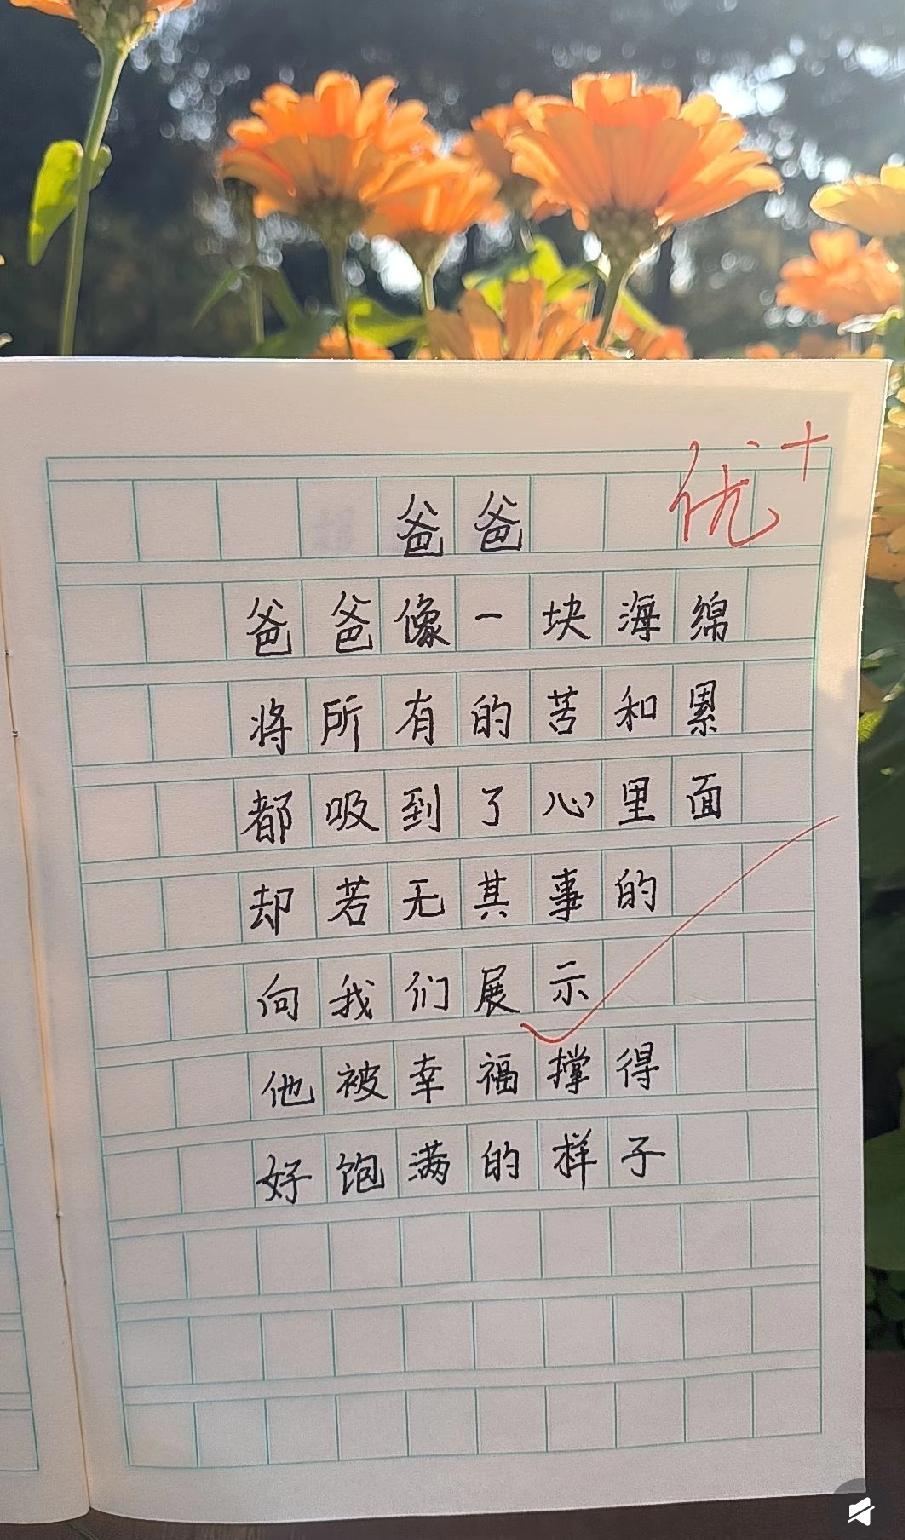 爸爸
优+
爸爸像一块海绵
将所有的苦和累
都吸到了心里面
却若无其事的
向我们展示
他被幸福撑得
好饱满的样子